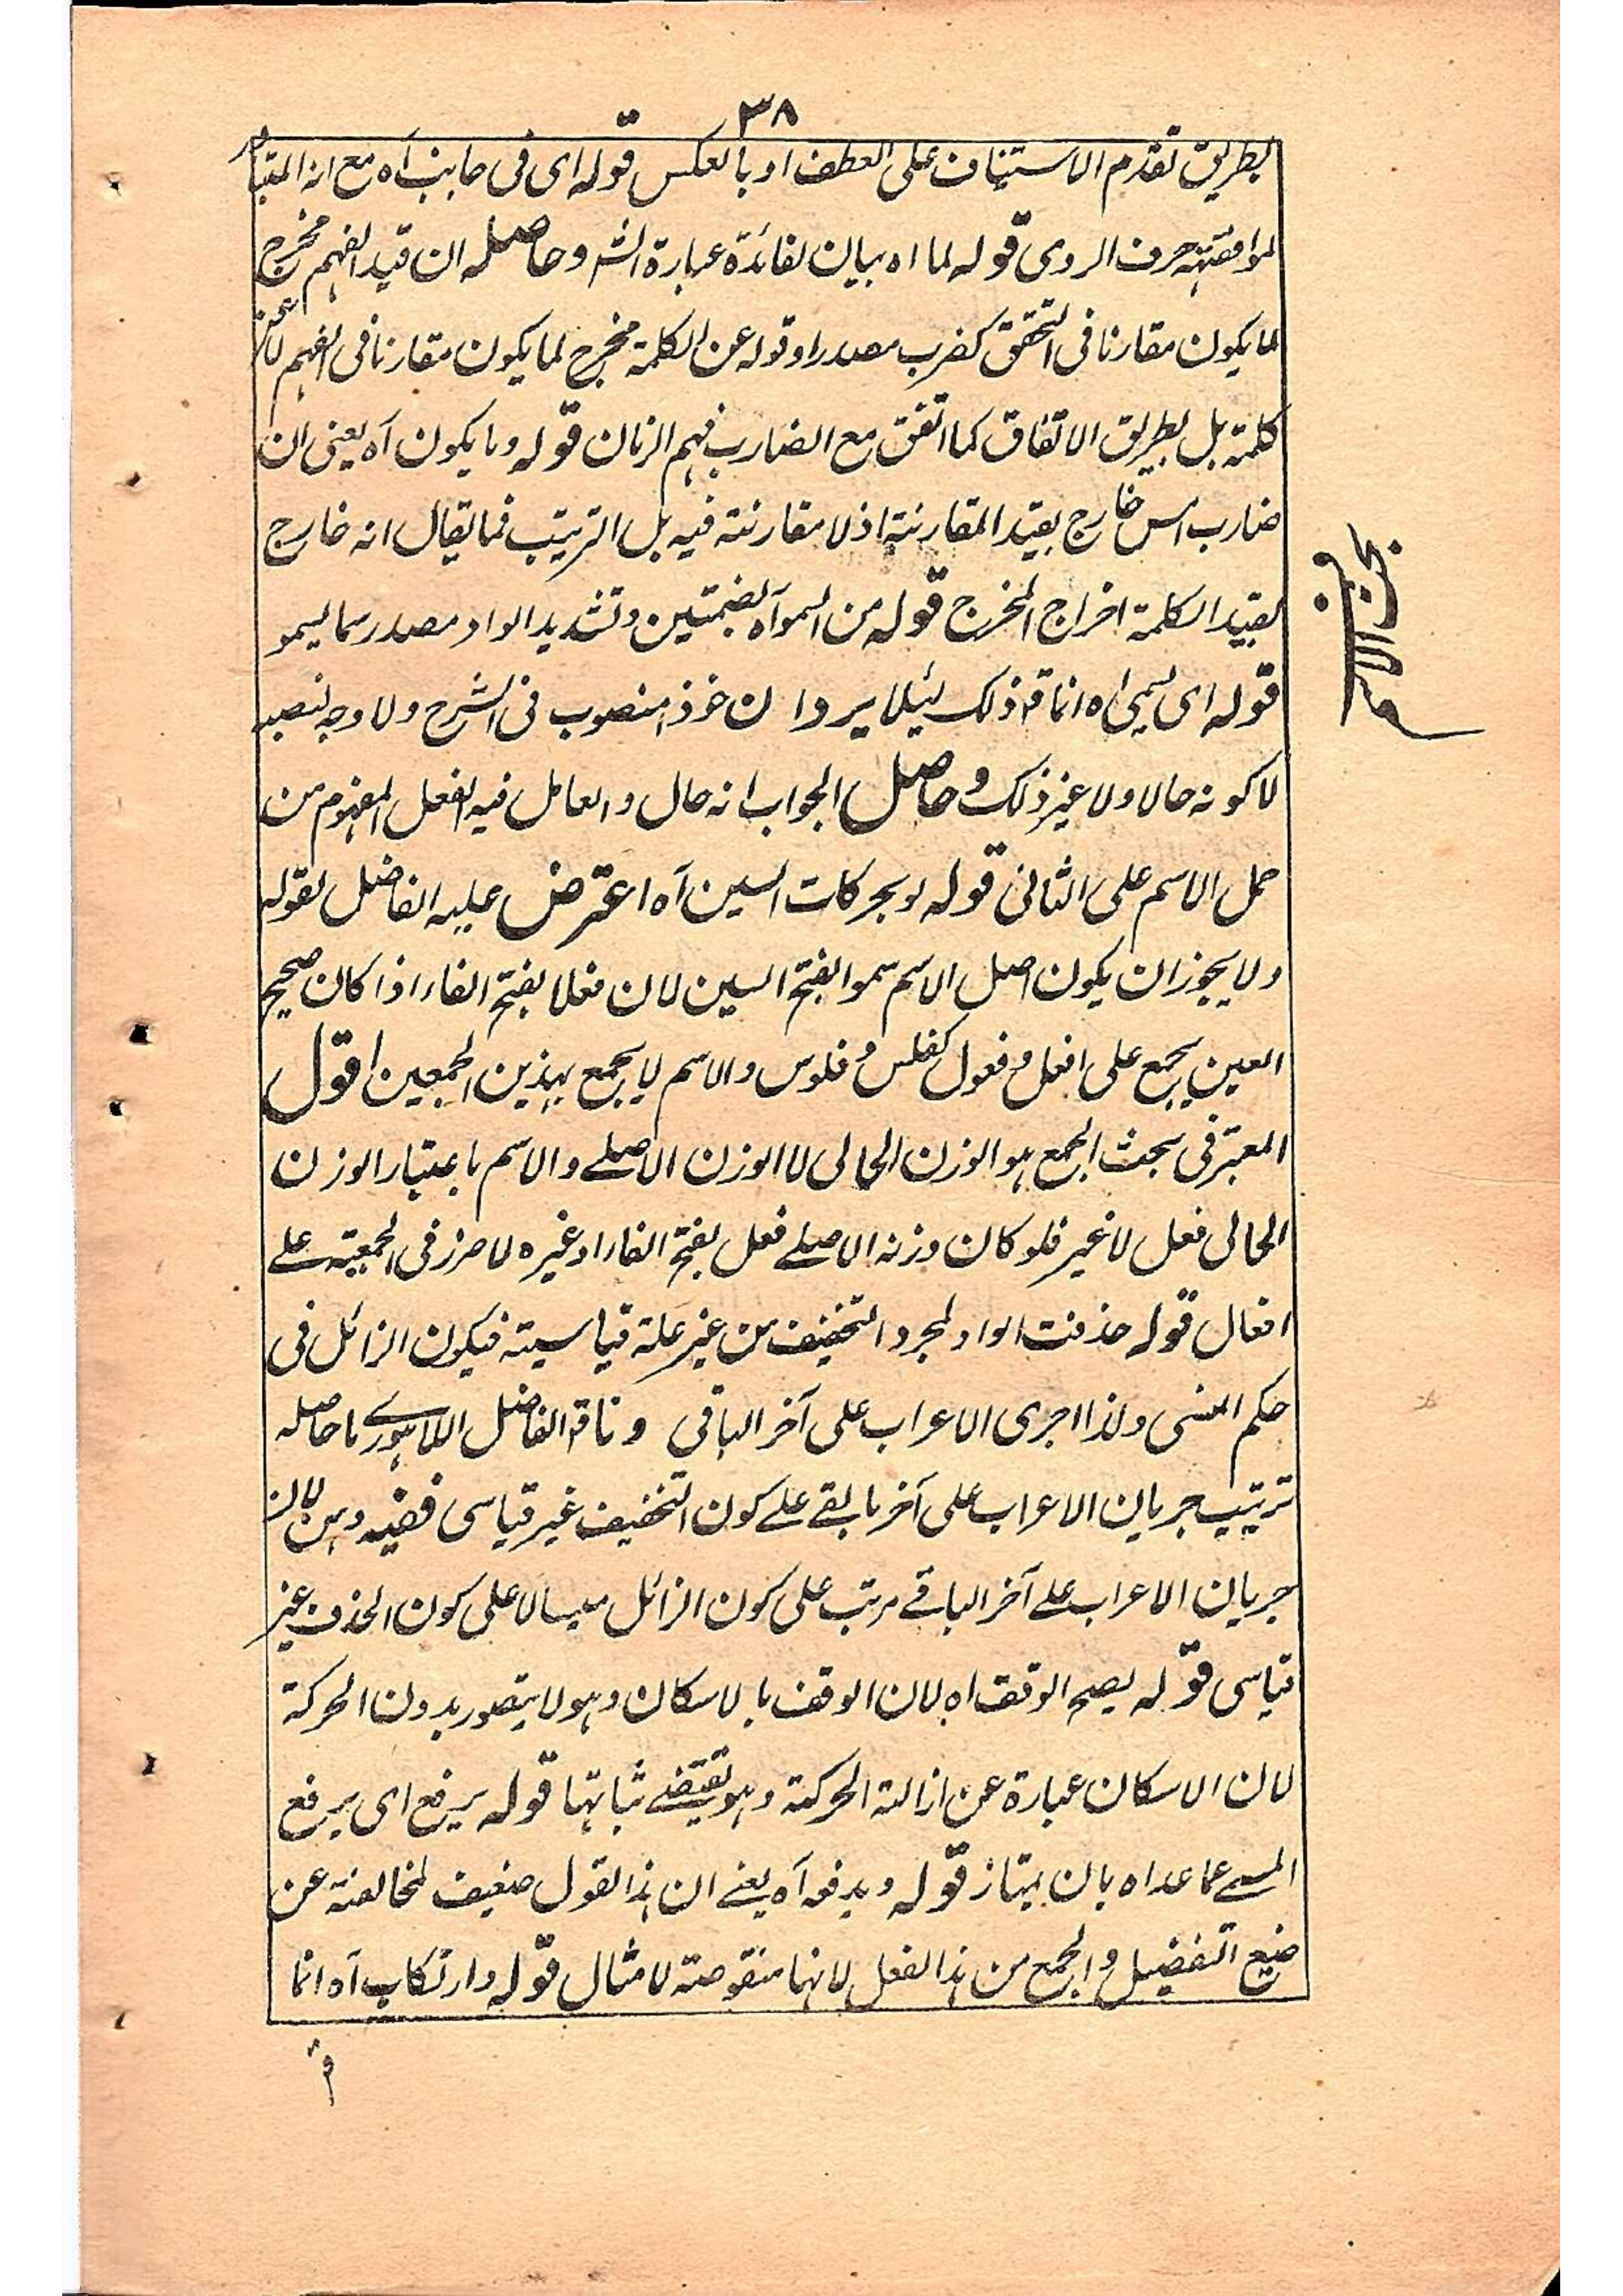 ٣٨
بطريق تقدم الاستيناف على العطف او بالعكس قوله اى فى جانب آه مع ان المتبادر
لموافقته حرف الروى قوله لما اه بيان لفائدة عبارة الشر وحاصله ان قيد الفهم مخرج
لما يكون مقارنا فى التحقق كضرب مصدرا وقوله عن الكلمة مخرج لما يكون مقارنا فى الفهم لا عن
كلمة بل بطريق الاتفاق كما اتفق مع الضارب فهم الزمان قوله وما يكون آه يعنى ان
ضارب امس خارج بقيد المقارنة اذ لا مقارنة فيه بل الترتيب فما يقال انه خارج
بقيد الكلمة اخراج المخرج قوله من السمو آه بضمتين وتشديد الواو مصدر سما يسمو
قوله اى يسمى اه انما قد ذلك لئلا يرد ان خذ منصوب فى الشرح ولا وجه لنصبه
لا كونه حالا ولا غير ذلك وحاصل الجواب انه حال والعامل فيه الفعل المفهوم من
حمل الاسم على الثانى قوله او بحركات السين آه اعترض عليه الفاضل بقوله
ولا يجوز ان يكون اصل الاسم سموا بفتح السين لان فعلا بفتح الفاء اذا كان صحيح
العين يجمع على افعل وفعول كفلس وفلوس والاسم لا يجمع بهذين الجمعين اقول
المعتبر فى بحث الجمع هو الوزن الحالى لا الوزن الاصلے والاسم باعتبار الوزن
الحالى فعل لا غير فلو كان وزنه الاصلے فعل بفتح الفاء او غيره لا ضرر فى الجمعية علے
افعال قوله حذفت الواو لمجرد التخفيف من غير علة قياسية فيكون الزائل فى
حكم المنسى ولذا اجرى الاعراب على آخر الباقى وما قد الفاضل اللاهورے ما حاصله
ترتيب جريان الاعراب على آخر ما بقے علے كون التخفيف غير قياسى ففيه وهن لان
جريان الاعراب علے آخر الباقے مرتب على كون الزائل منسيا لا على كون الحذف غير
قياسى قوله يصح الوقف اه لان الوقف بالاسكان وهو لا يتصور بدون الحركة
لان الاسكان عبارة عن ازالة الحركة وهو يقتضے ثباتها قوله يرفع اى يرفع
المسمے عما عداه بان يمتاز قوله ويدفعه آه يعنے ان هذا القول ضعيف لمخالفته عن
صنيع التفضيل والجمع من هذا الفعل لانهما منقوصة لا مثال قوله وارتكاب آه انما
بحث الاسم